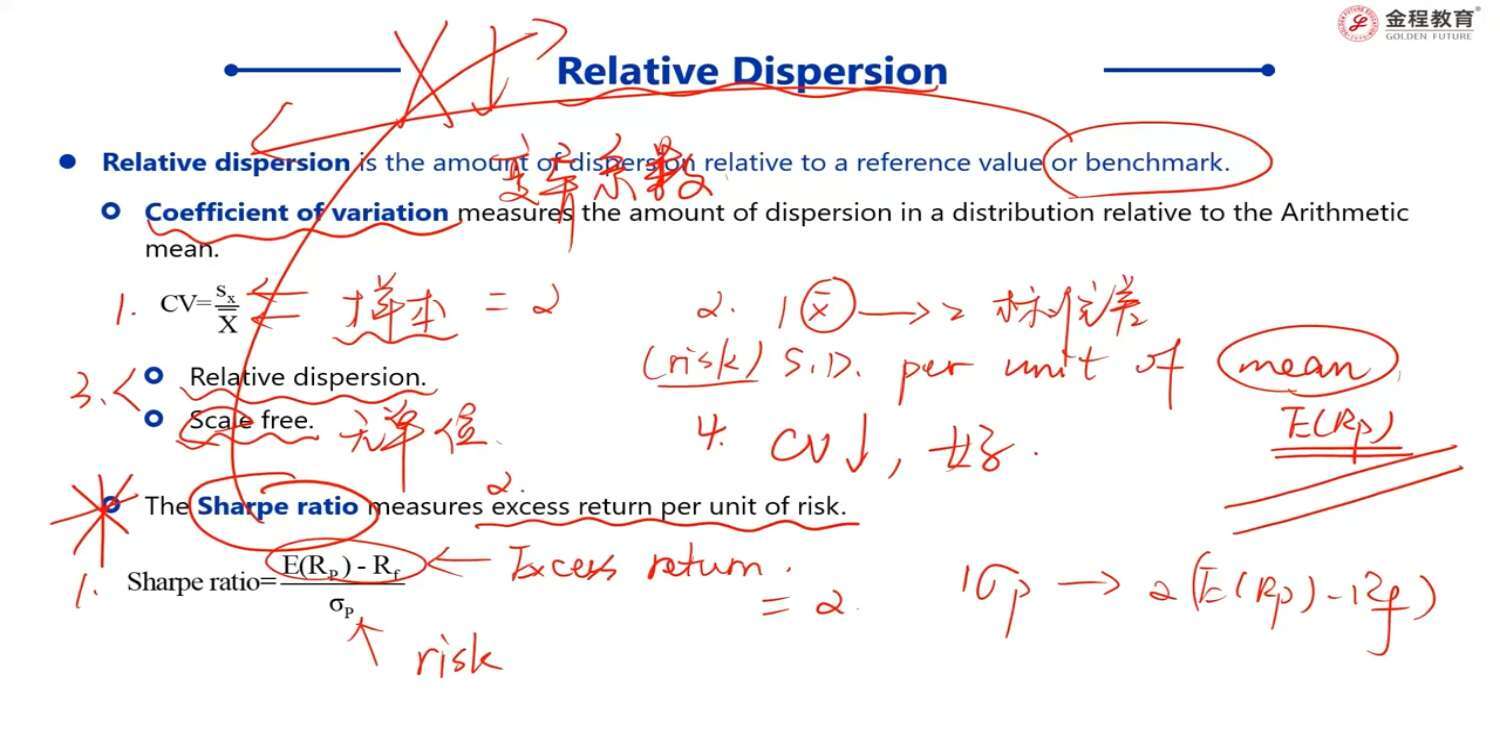 金程教育
GOLDEN FUTURE
Relative Dispersion
Relative dispersion is the amount of dispersion relative to a reference value or benchmark.
变异系数
Coefficient of variation measures the amount of dispersion in a distribution relative to the Arithmetic
mean.
1. CV=sx/X̄ ← 样本 = 2
2. 1 x̄ → 2 标准差
(risk) S.D. per unit of mean
E(Rp)
3. Relative dispersion.
Scale free. 无单位
4. CV↓, 好.
2.
The Sharpe ratio measures excess return per unit of risk.
1. Sharpe ratio=E(RP) - Rf/σP ← Excess return.
= 2
risk
1σp → 2(E(Rp)-Rf)